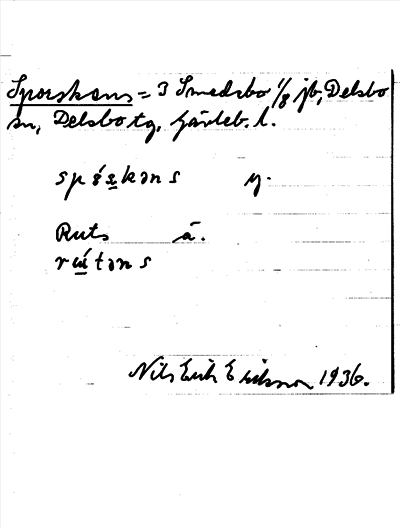 Sporskans = 3 Smedsbo 1/8 jb, Delsbo
sn, Delsbo tg, Gävleb. l.
spóskəns y.
Ruts ä.
rútəns
Nils Erik Eriksson 1936.